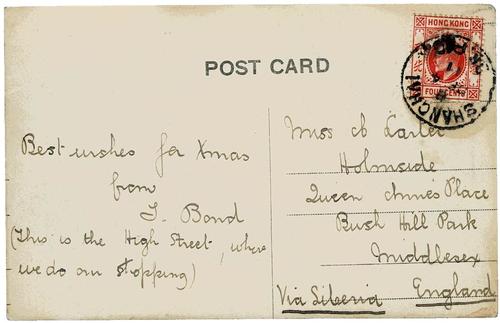 POST CARD
HONG KONG
FOUR CENTS
SHANGHAI
Best wishes for Xmas
from
J. Bond
(This is the High Street, where
we do our shopping)
Miss
Holmside
Queen Anne's Place
Bush Hill Park
Middlesex
England
Via Siberia